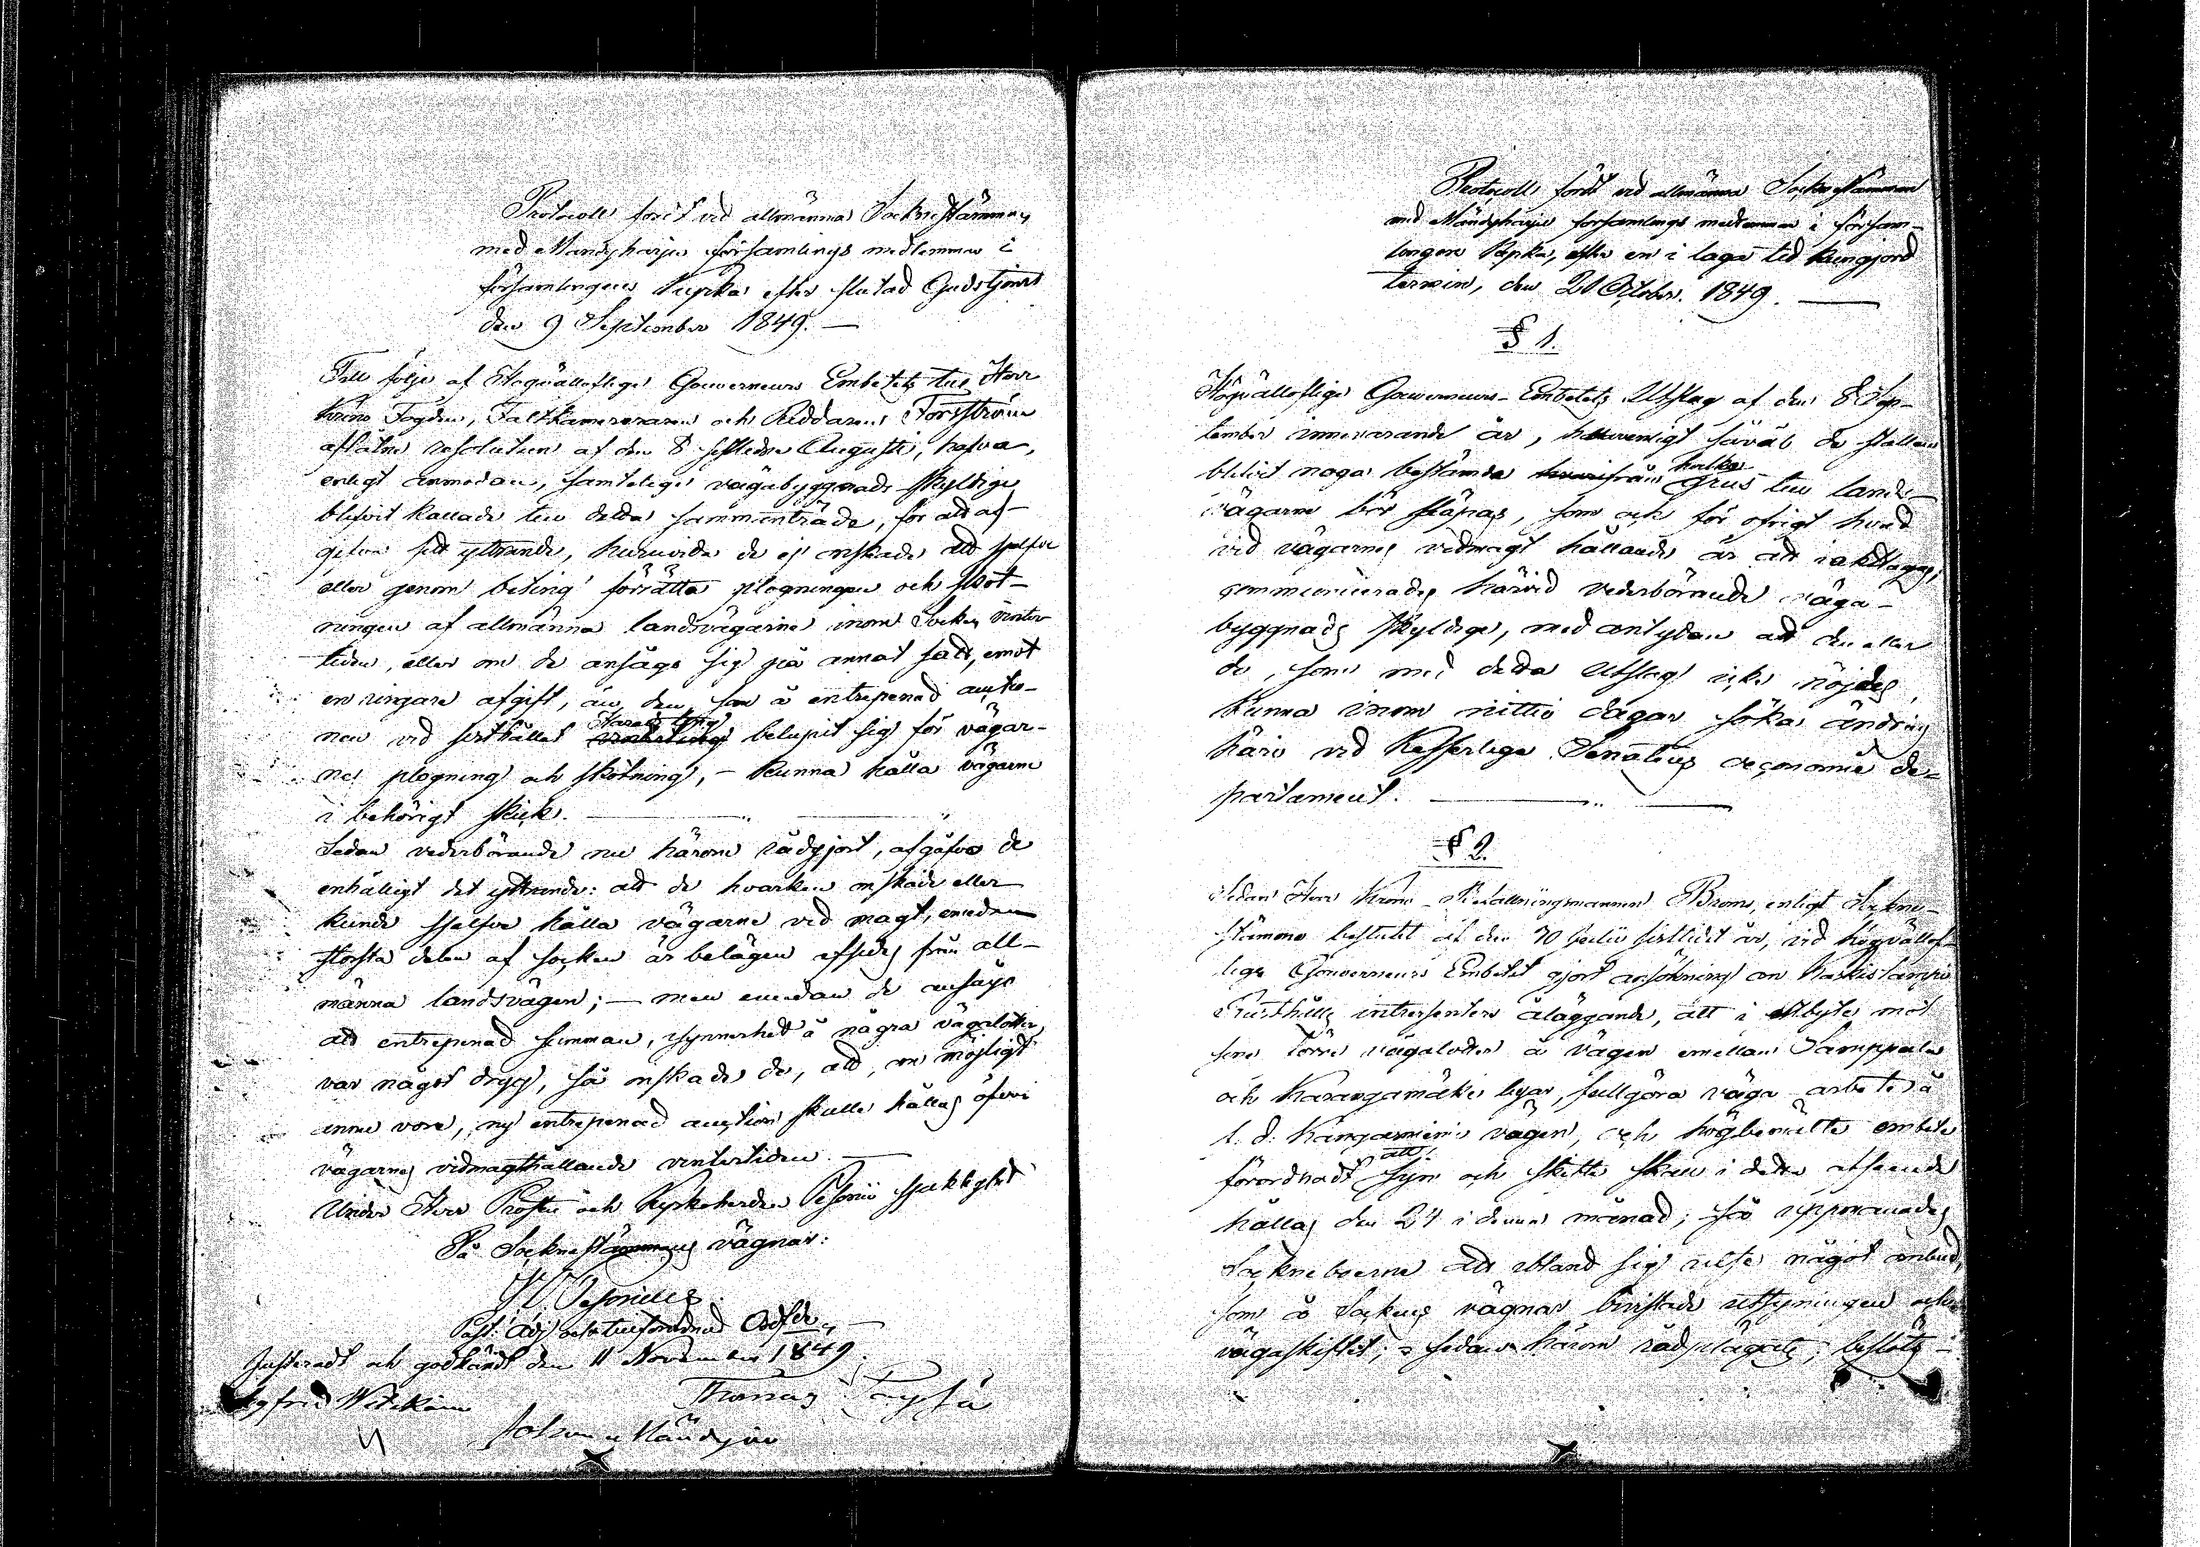 Protocoll fördt vid allmänna Sockne Stämman
med Mändyharju församlings medlemmar i
församlingens Kyrka efter slutad Gudstjenst
den 9 September 1849. —
Till följe af Högvälloflige Gouverneurs Embetets till Herr
Krono Fogden, Faltkamereraren och Riddaren Forsström
aflåtne resolution af den 8 sistledne Augusti, hafva,
enligt anmodan, samtelige vägabyggnads skyldige
blifvit kallade till detta sammanträde, för att af-
gifva sitt yttrande, huruvida de ej önskade att sjelfve
eller genom beting förrätta plogningen och sköt-
ningen af allmänna landsvägarne inom Socken vinter
tiden, eller om de ansågo sig på annat sätt, emot
en ringare afgift, än den, som å entrepenad auctio-
nen vid sisthållet Härads ting belupit sig för vägar-
nes plogning och skötning, — kunna hålla vägarne
i behörigt skick.
Sedan vederbörande nu härom rådgjort, afgåfvo de
enhälligt det yttrande: att de hvarken önskade eller
kunde sjelfve hålla vägarne vid magt, emedan
största delen af socken är belägen afsides från all-
männa landsvägen; — men emedan de ansågo
att entrepenad summan, isynnerhet å några vägalotter,
var något dryg, så önskade de, att, om möjligt
ännu vore, ny entrepenad auction skulle hållas öfver
vägarnes vidmagthållande vintertiden. —
Under Herr Prosten och Kyrkoherden Pesonii sjuklighet
På Sockne Stämmans vägnar:
Pesonius
Past: Adj och tillförordnad Ordfde. —
Justeradt och godkändt den 11 November 1849.
Thomas
Johan Mändynen
Protocoll fördt vid allmänna Sockne Stämman
med Mändyharju församlings medlemmar i försam-
lingens Kyrka, efter en i laga tid kungjord
termin, den 21 October 1849. —
§ 1.
Högvällofliga Gouverneurs-Embetets Utslag af den 8 Sep-
tember innevarande år, hvarigenom såväl de ställen
blifvit noga bestämda hvarifrån grus till lands-
vägarne bör släpas, som och för öfrigt hvad
vid vägarnes vidmagt hållande är att iakttagas,
communicerades härvid vederbörande väga-
byggnads skyldige, med antydan att den eller
de, som med detta Utslag icke nöjdes,
kunna inom nittio dagar söka ändring
häri vid Kejserliga Senatens oeconomie de-
partament. —
§ 2.
Sedan Herr Krono-Befallningsmannen Brom, enligt Sockne-
stämmo beslutet af den 10 Julii sistlidet år, vid högvällof-
lige Gouverneurs Embetet gjort ansökning om Karkislampi
Rusthålls intressenters åläggande, att i utbyte mot
sina förra vägalotter å vägen emellan Lamppila
och Karangamäki byar, fullgöra väga arbete å
s. d. Kangasniemi vägen, och högbemälte embete
förordnadt att syn och skifte skall i detta afseende
hållas den 24 i denna månad; så uppmanades
Sockneboerne att ibland sig utse något ombud,
som å Sockens vägnar bivistade utsyningen och
vägaskiftet; o sedan härom rådplägats, beslöts —